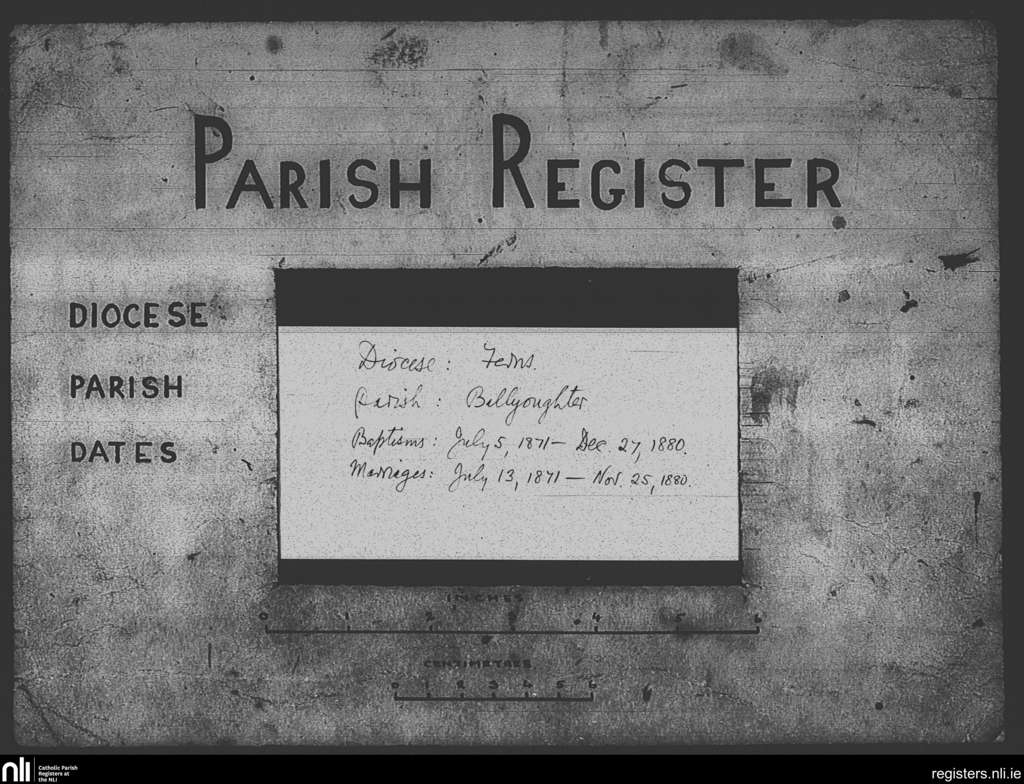 PARISH REGISTER
DIOCESE
PARISH
DATES
Diocese: Ferns.
Parish: Ballyoughter
Baptisms: July 5, 1871 — Dec. 27, 1880.
Marriages: July 13, 1871 — Nov. 25, 1880.
INCHES
0 1 2 3 4 5 6
CENTIMETRES
0 1 2 3 4 5 6
nli
Catholic Parish
Registers at
the NLI
registers.nli.ie